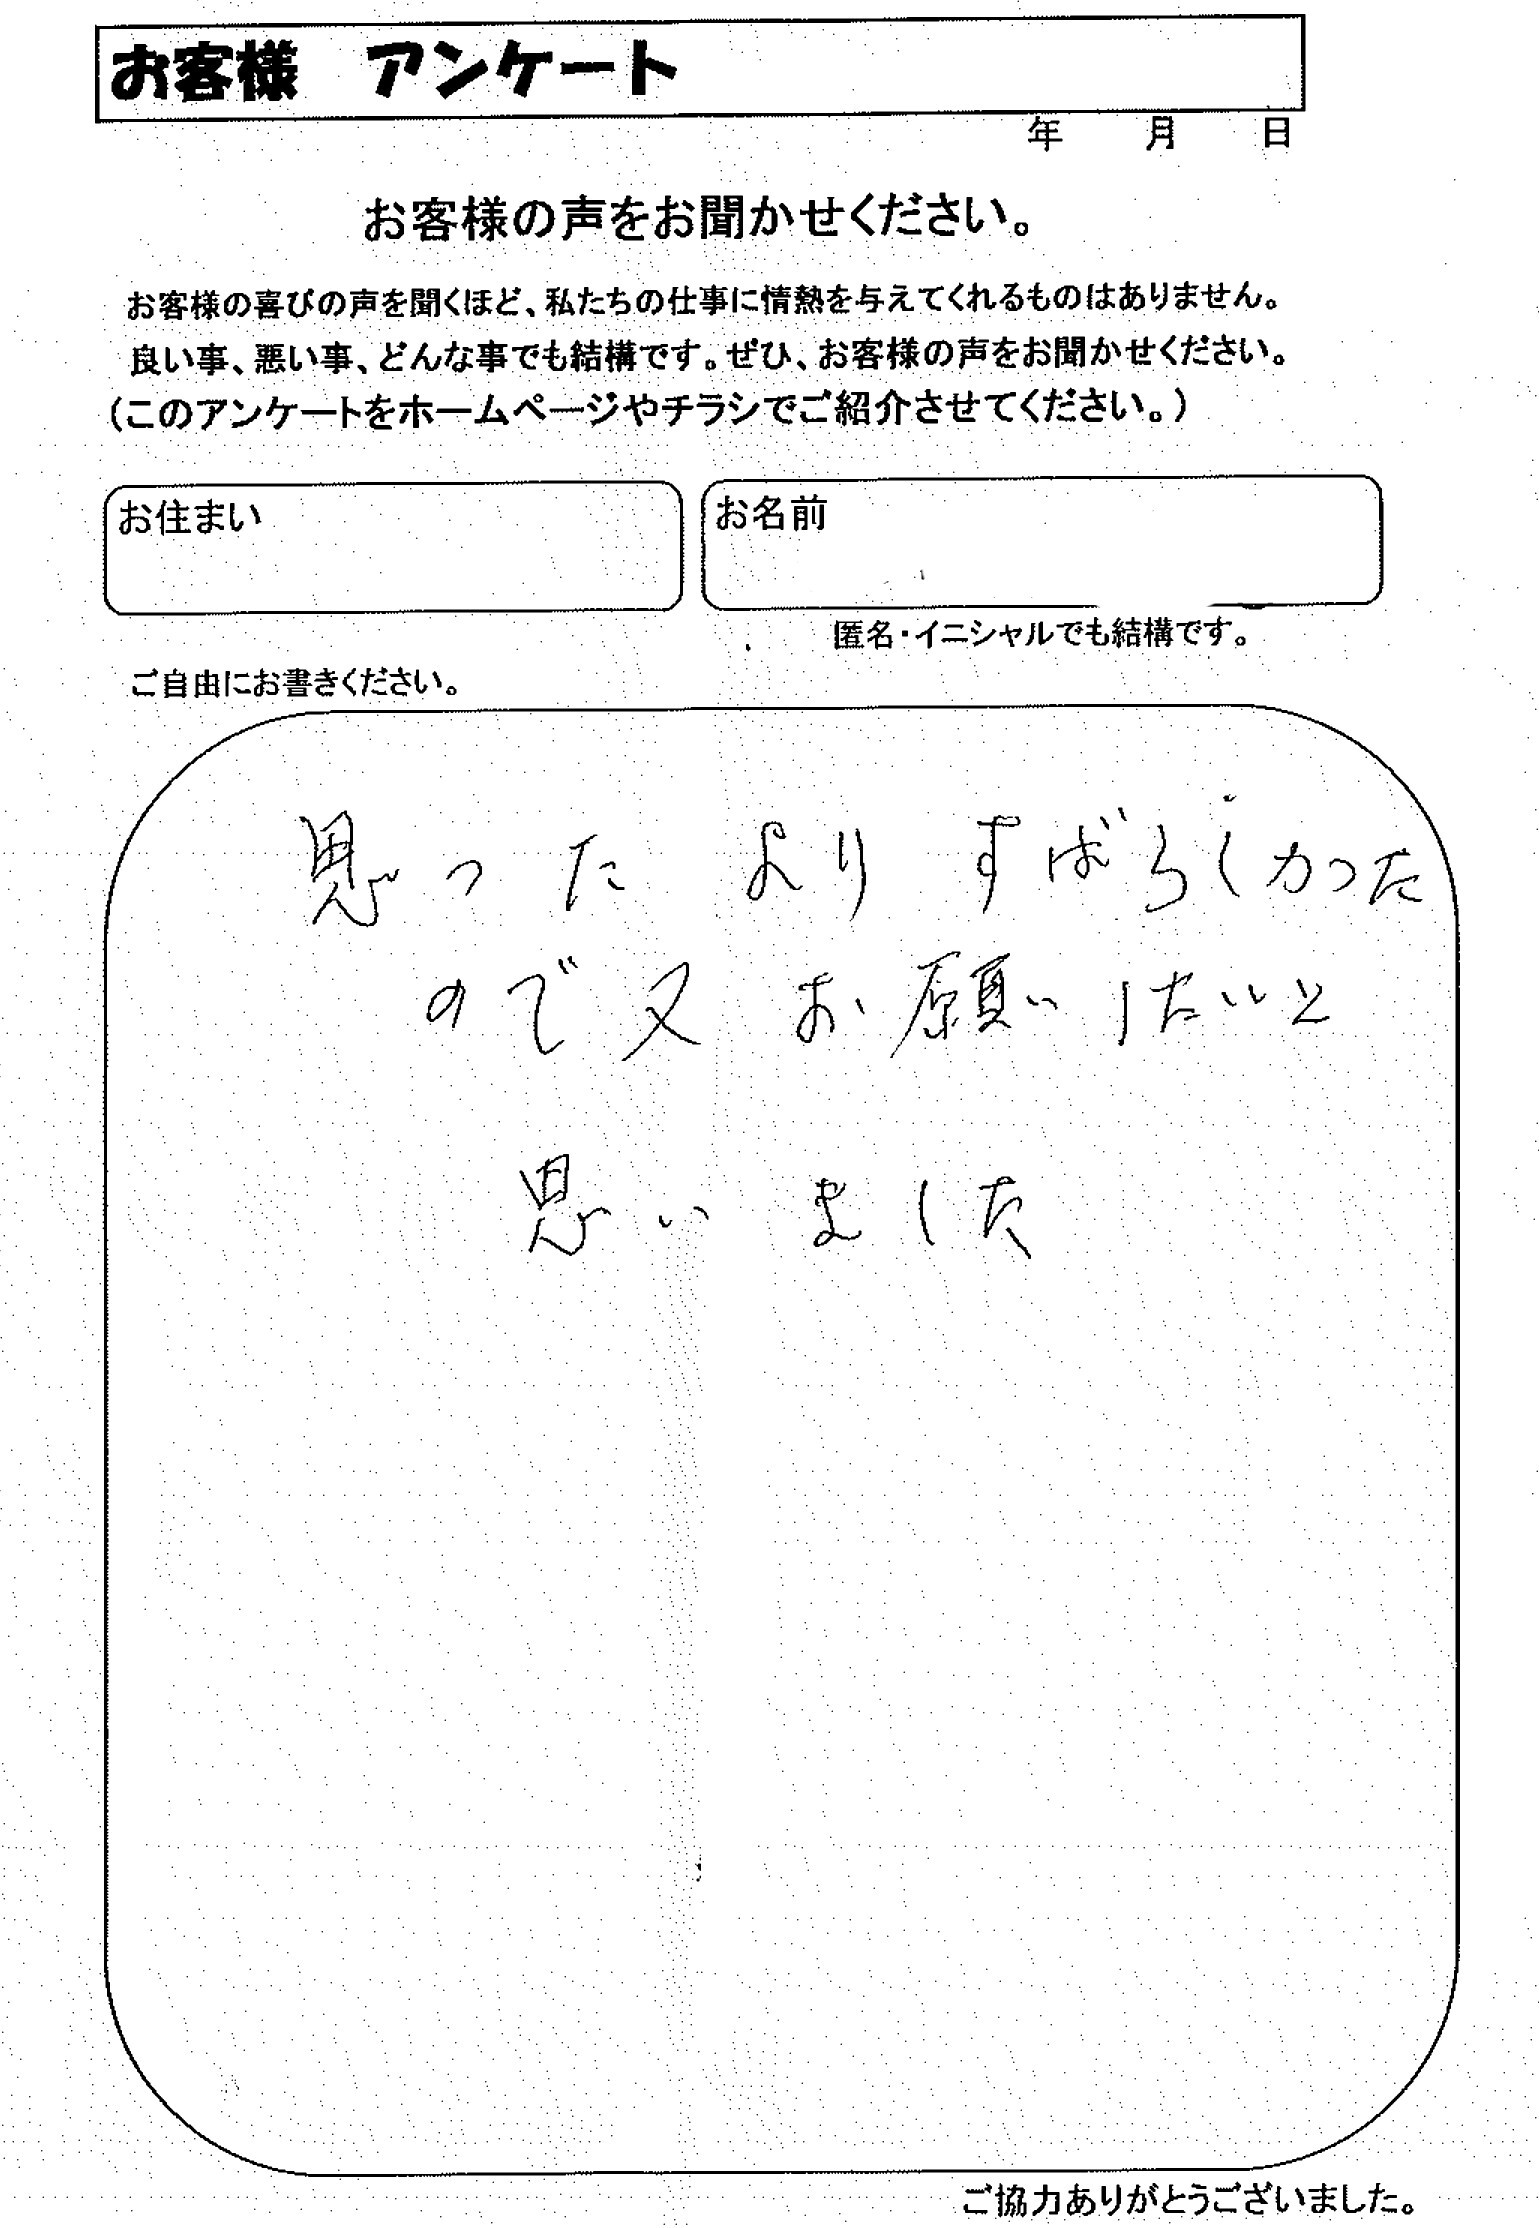 お客様 アンケート
年 月 日
お客様の声をお聞かせください。
お客様の喜びの声を聞くほど、私たちの仕事に情熱を与えてくれるものはありません。
良い事、悪い事、どんな事でも結構です。ぜひ、お客様の声をお聞かせください。
(このアンケートをホームページやチラシでご紹介させてください。)
お住まい
お名前
匿名・イニシャルでも結構です。
ご自由にお書きください。
思ったよりすばらしかった
ので又お願いしたいと
思いました
ご協力ありがとうございました。